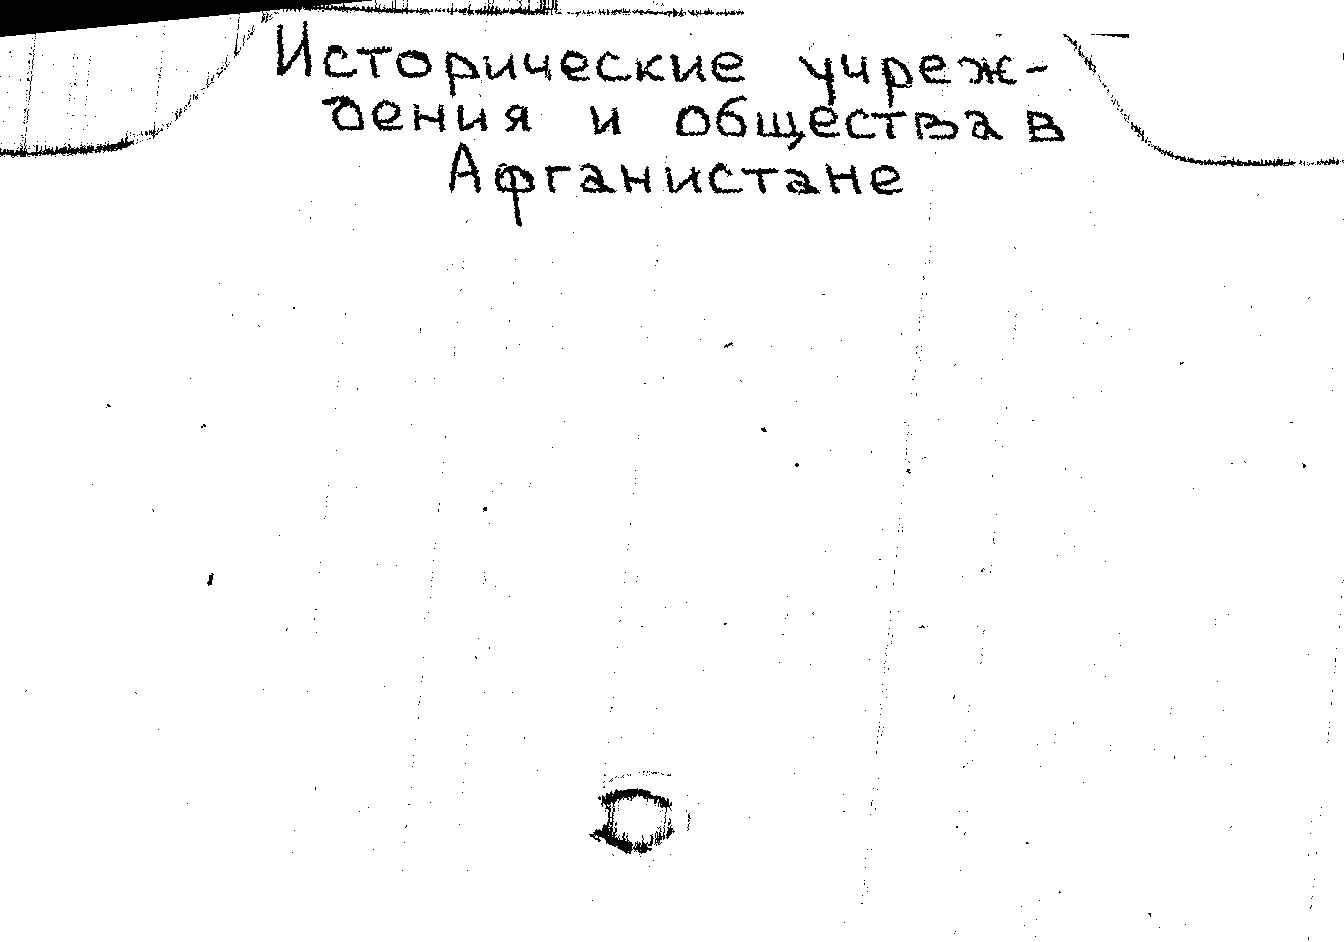 Исторические учреж-
дения и общества в
Афганистане